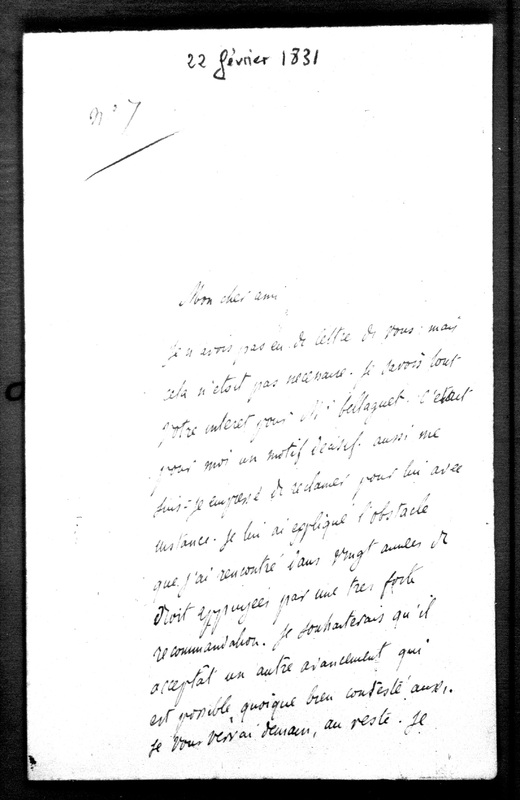 22 février 1831
N° 7
Mon cher ami
je n'avois pas eu de lettre de vous. mais
cela n'etoit pas necessaire. je savois tout
votre interet pour Mr bellaguet. C'etoit
pour moi un motif decisif. aussi me
suis-je empressé de reclamer pour lui avec
instance. je lui ai expliqué l'obstacle
que j'ai rencontré dans vingt années de
droit appuyées par une tres forte
recommandation. je souhaiterais qu'il
acceptât un autre avancement qui
est possible quoique bien contesté aussi.
je vous verrai demain, au reste. je